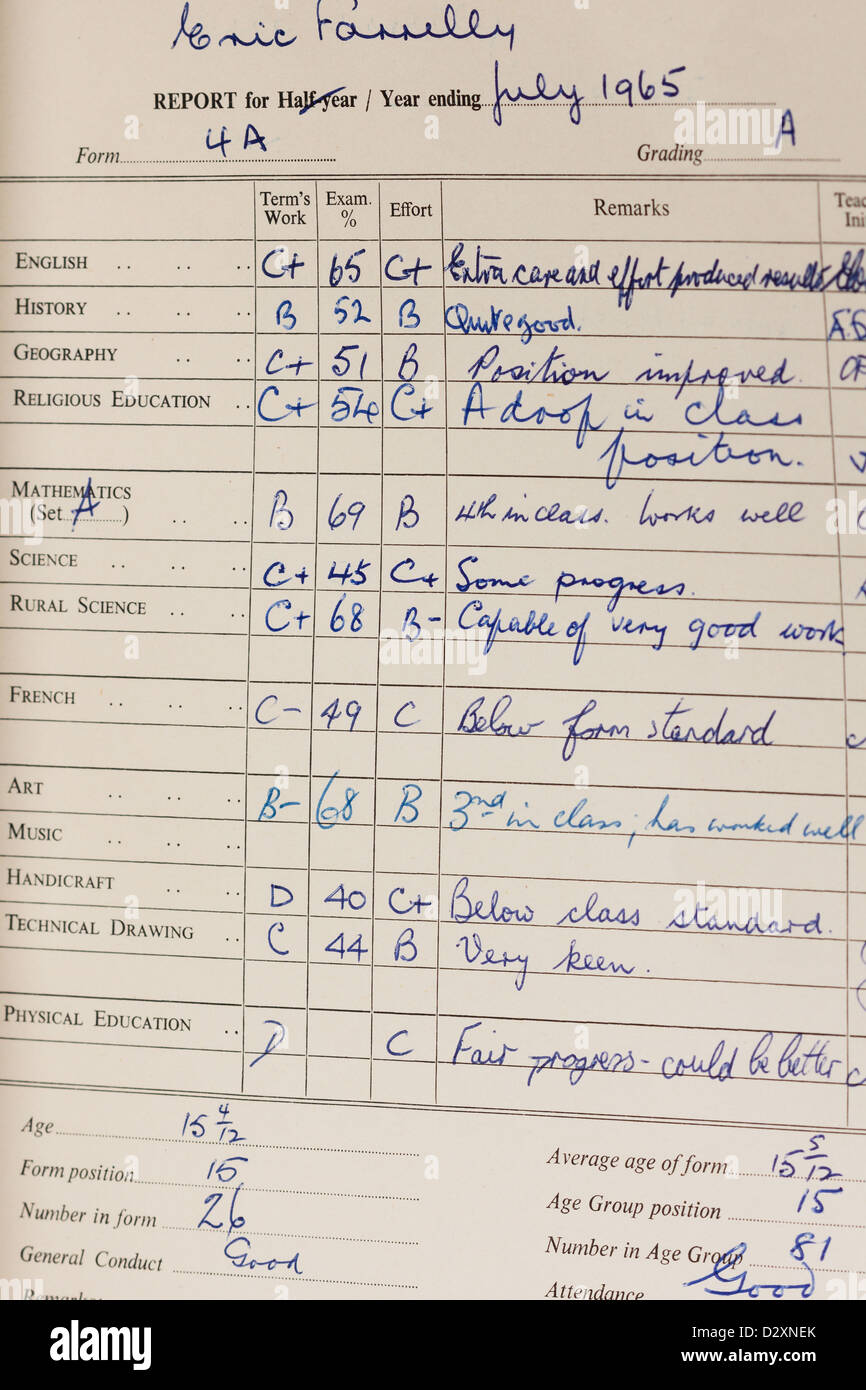 Eric Farrelly
REPORT for Half-year / Year ending July 1965
Form 4A Grading A
Term's Work Exam. % Effort Remarks
ENGLISH C+ 65 C+ Extra care and effort produced results
HISTORY B 52 B Quite good.
GEOGRAPHY C+ 51 B Position improved.
RELIGIOUS EDUCATION C+ 54 C+ A drop in class
position.
MATHEMATICS
(Set A) B 69 B 4th in class. Works well
SCIENCE C+ 45 C+ Some progress.
RURAL SCIENCE C+ 68 B- Capable of very good work
FRENCH C- 49 C Below form standard
ART B- 68 B 3nd in class; has worked well
MUSIC
HANDICRAFT D 40 C+ Below class standard.
TECHNICAL DRAWING C 44 B Very keen.
PHYSICAL EDUCATION D C Fair progress - could be better
Age 15 4/12 Average age of form 15 5/12
Form position 15 Age Group position 15
Number in form 26 Number in Age Group 81
General Conduct Good Attendance Good
alamy
Image ID: D2XNEK
www.alamy.com